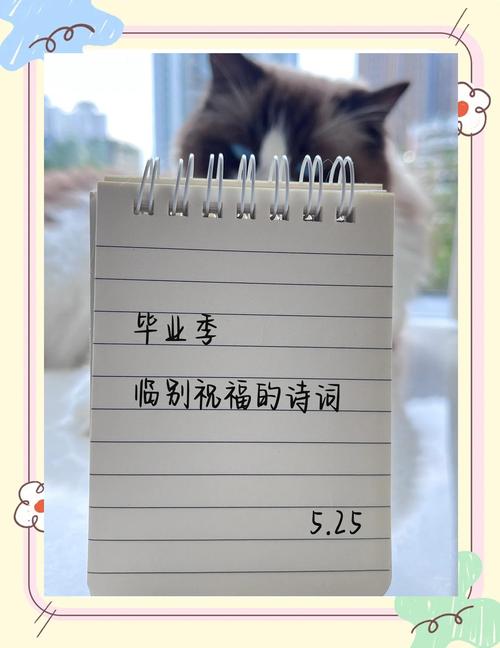 毕业季
临别祝福的诗词
5.25